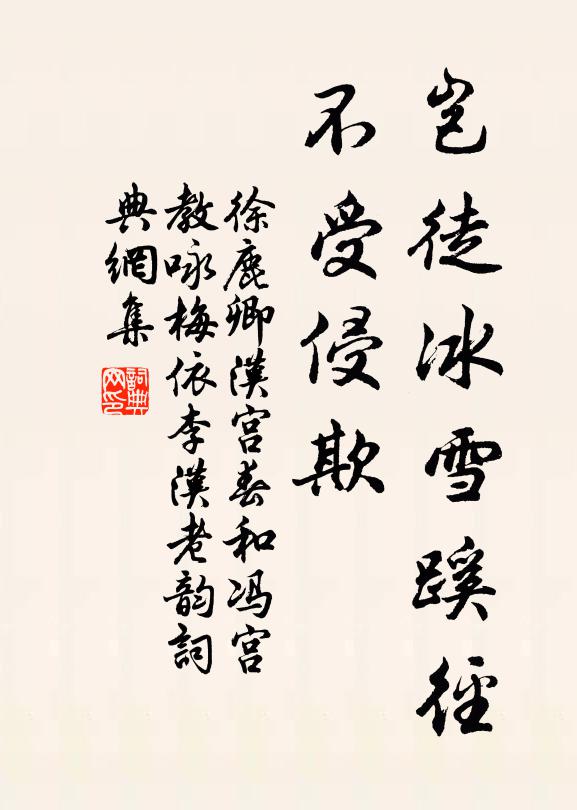 岂徒冰雪蹊徑
不受侵欺
徐鹿卿漢宮春和冯宮
教咏梅依李漢老韵詞
典網集
詞典網印